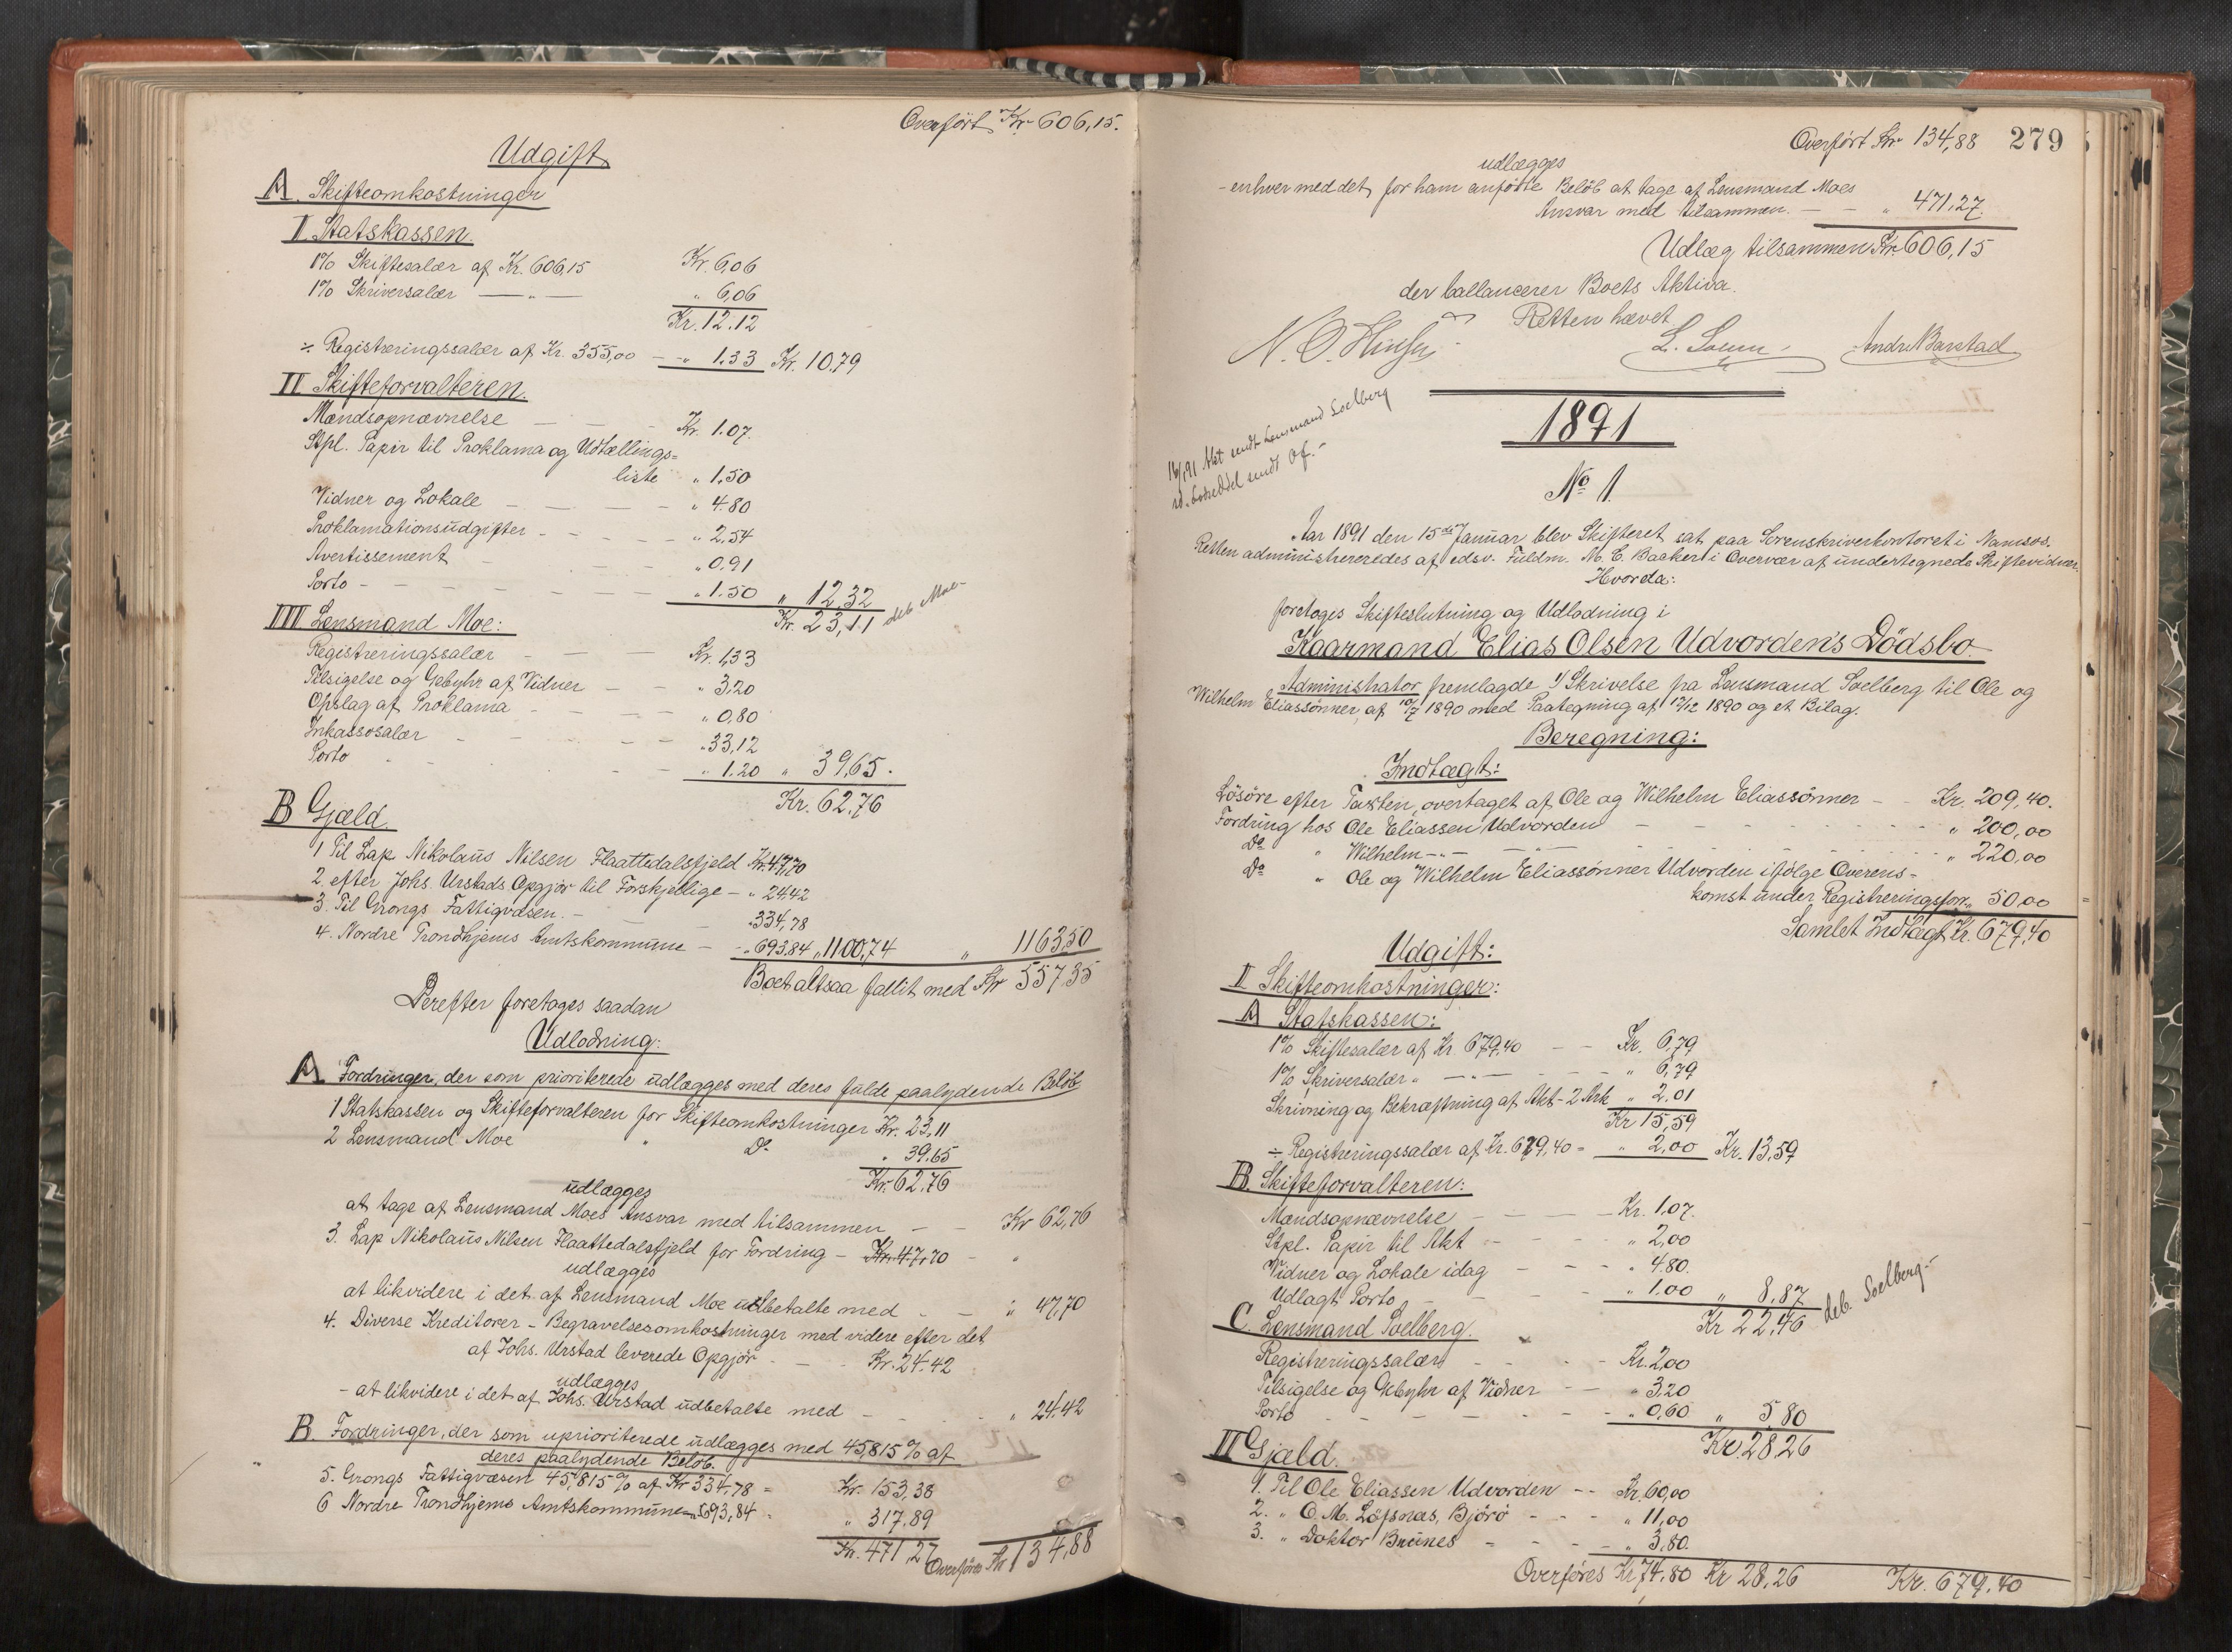 Overført Kr. 606,15.
Udgift
A. Skifteomkostninger
I Statskassen.
1% Skiftesalær af Kr. 606,15 Kr. 6,06
1% Skriversalær — „ — „ 6,06
Kr. 12.12
÷ Registreringssalær af Kr. 355,00 — „ 1.33 Kr. 10.79
II Skifteforvalteren.
Mændsopnævnelse — — — Kr. 1.07.
Stpl. Papir til Proklama og Udtællings=
liste „ 1,50
Vidner og Lokale — — — „ 4.80
Proklamationsudgifter — — — „ 2.54
Avertissement — — — „ 0.91
Porto — — — „ 1.50 „ 12.32
Kr. 23,11 deb. Moe
III Lensmand Moe:
Registreringssalær — — — Kr. 1,33
Tilsigelse og Gebyhr af Vidner — — „ 3,20
Opslag af Proklama — — — „ 0,80
Inkassosalær — — — „ 33,12
Porto — — — „ 1.20 „ 39,65.
Kr. 62,76
B Gjæld.
1 Til Lap Nikolaus Nilsen Flaattedalsfjeld Kr. 47,70
2. efter Johs. Urstads Opgjør til Forskjellige — „ 24.42
3. Til Grongs Fattigvæsen. — „ 334,78
4. Nordre Trondhjems Amtskommune — „ 693.84 „ 1100,74 „ 1163,50
Boet altsaa fallit med Kr 557,35
Derefter foretoges saadan
Udlodning:
A Fordringer, der som prioriterede udlægges med deres fulde paalydende Beløb
1 Statskassen og Skifteforvalteren for Skifteomkostninger Kr. 23,11
2 Lensmand Moe „ Do „ 39,65
Kr. 62,76
udlægges
at tage af Lensmand Moes Ansvar med tilsammen — — Kr 62,76
3. Lap Nikolaus Nilsen Flaattedalsfjeld for Fordring — Kr. 47,70 —
udlægges
at likvidere i det af Lensmand Moe udbetalte med — — „ 47,70
4. Diverse Kreditorer — Begravelsesomkostninger med videre efter det
af Johs. Urstad leverede Opgjør — — Kr. 24.42
udlægges
— at likvidere i det af Johs. Urstad udbetalte med — — „ 24.42
B. Fordringer, der som uprioriterede udlægges med 45,815% af
deres paalydende Beløb.
5. Grongs Fattigvæsen 45,815% af Kr 334,78 = Kr. 153,38
6 Nordre Trondhjems Amtskommune — „ 693,84 = „ 317.89
Kr. 471,27 Overføres Kr 134,88
Overført Kr 134,88 279
udlægges
— enhver med det for ham anførte Beløb at tage af Lensmand Moes
Ansvar med tilsammen. — — „ 471,27.
Udlæg tilsammen Kr. 606,15
der ballancerer Boets Aktiva.
Retten hævet
L. Andr Barstad
1891
16/1 91 Akt sendt Lensmand Soelberg
No 1.
Aar 1891 den 15de Januar blev Skifteret sat paa Sorenskriverkontoret i Namsos.
Retten administreredes af edsv. Fuldm. M. E. Baaker i Overvær af undertegnede Skiftevidner.
Hvorda:
foretoges Skifteslutning og Udlodning i
Kaarmand Elias Olsen Udvorden's Dödsbo.
Administrator fremlagde 1/ Skrivelse fra Lensmand Soelberg til Ole og
Wilhelm Eliassønner af 10/7 1890 med Paategning af 17/12 1890 og et Bilag.
Beregning:
Indtægt:
Løsøre efter Taxten, overtaget af Ole og Wilhelm Eliassønner — Kr. 209,40.
Fordring hos Ole Eliassen Udvorden — — — „ 200,00
Do „ Wilhelm — „ — — — „ 220,00
Do „ Ole og Wilhelm Eliassønner Udvorden ifølge Overens-
komst under Registreringsforr. „ 50,00
Samlet Indtægt Kr. 679,40
Udgift:
I Skifteomkostninger:
A Statskassen:
1% Skiftesalær af Kr 679,40 — — Kr. 6,79
1% Skriversalær „ — „ — „ 6,79
Skrivning og Bekræftning af Akt — 2 Ark „ 2,01
Kr 15,59
÷ Registreringssalær af Kr. 679,40 = „ 2,00 Kr. 13,59
B. Skifteforvalteren:
Mændsopnævnelse — — — Kr. 1,07.
Stpl. Papir til Akt — — — „ 2,00
Vidner og Lokale idag — — — „ 4.80.
Udlagt Porto — — — „ 1.00 „ 8,87
Kr 22,46 deb. Soelberg.
C. Lensmand Soelberg.
Registreringssalær — — — Kr. 2,00
Tilsigelse og Gebyhr af Vidner — — „ 3,20
Porto — — — „ 0,60 „ 5,80
Kr 28.26
II Gjæld.
1. Til Ole Eliassen Udvorden — — Kr. 60,00
2. „ O. M. Løfsnæs, Bjørø — — — „ 11,00
3. „ Doktor Brünes — — — „ 3,80.
Overføres Kr 74.80 Kr 28,26 Kr. 679,40